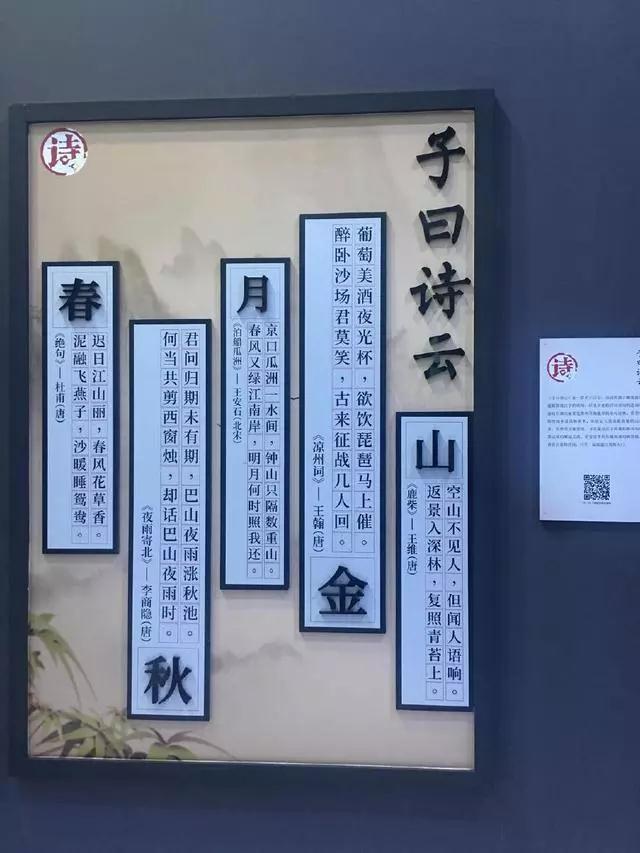 子曰诗云
诗
山
空山不见人，但闻人语响。
返景入深林，复照青苔上。
《鹿柴》—王维(唐)
葡萄美酒夜光杯，欲饮琵琶马上催。
醉卧沙场君莫笑，古来征战几人回。
《凉州词》—王翰(唐)
金
月
京口瓜洲一水间，钟山只隔数重山。
春风又绿江南岸，明月何时照我还。
《泊船瓜洲》—王安石(北宋)
君问归期未有期，巴山夜雨涨秋池。
何当共剪西窗烛，却话巴山夜雨时。
《夜雨寄北》—李商隐(唐)
秋
春
迟日江山丽，春风花草香。
泥融飞燕子，沙暖睡鸳鸯。
《绝句》—杜甫(唐)
诗